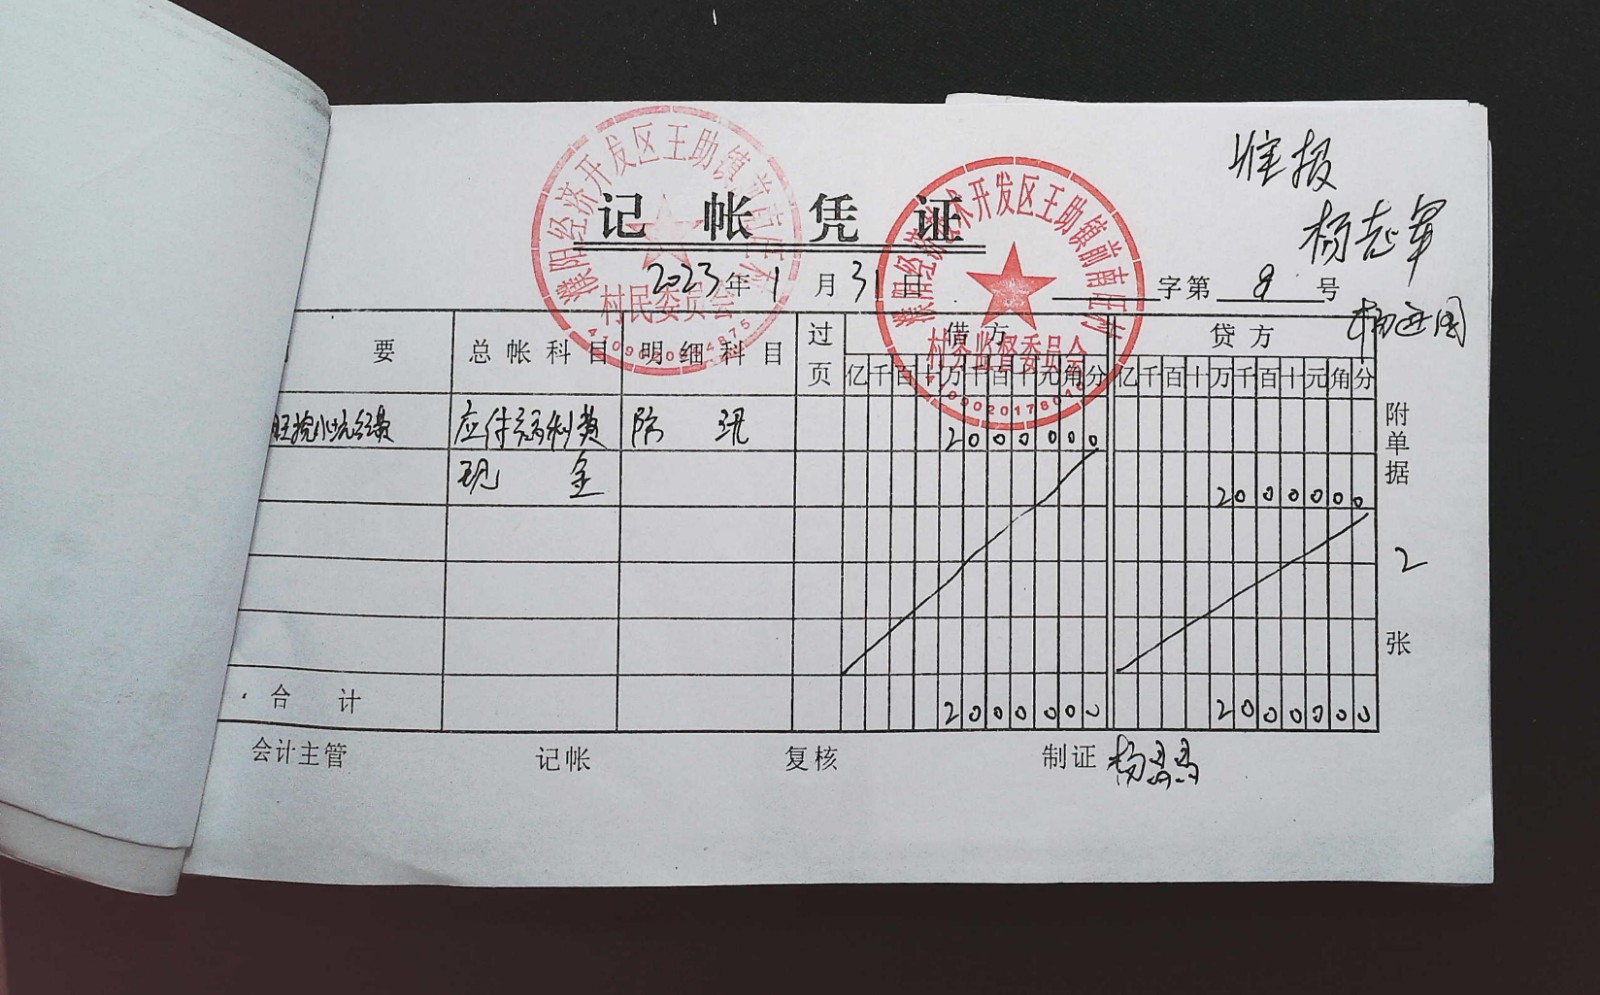 准报
杨志军
记 帐 凭 证
2023年1月31日 字第 9 号
要 总帐科目 明细科目 过页 借方 贷方
亿千百十万千百十元角分 亿千百十万千百十元角分
应付福利费 防 汛 2000000
现 金 2000000
合 计 2000000 2000000
附单据 2 张
会计主管 记帐 复核 制证
濮阳经济开发区王助镇前南旺村
村民委员会
濮阳经济技术开发区王助镇前南旺村
村务监督委员会